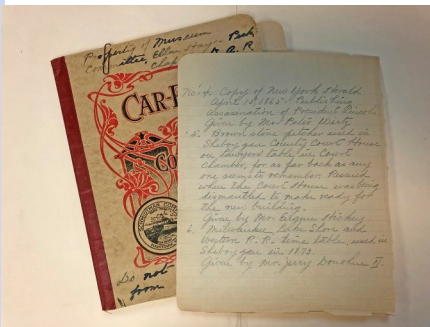 Property of Museum
Committee, Ellen Hayes Peck
Chap. D. A. R.
CAR-
Co
Do not
from
No. 4. Copy of New York Herald
April 15, 1865 - Publishing
assassination of President Lincoln
Given by Mrs. Peter Wertz
5. Brown stone pitcher used in
Sheboygan County Court House
on lawyers table in Court
Chamber, for as far back as any
one seems to remember. Rescued
when the Court House was being
dismantled to make ready for
the new building.
Given by Mrs. Eugene Hickey.
6. Milwaukee, Lake Shore and
Western R. R. time table, used in
Sheboygan in 1873.
Given by Mrs. Jerry Donohue II.